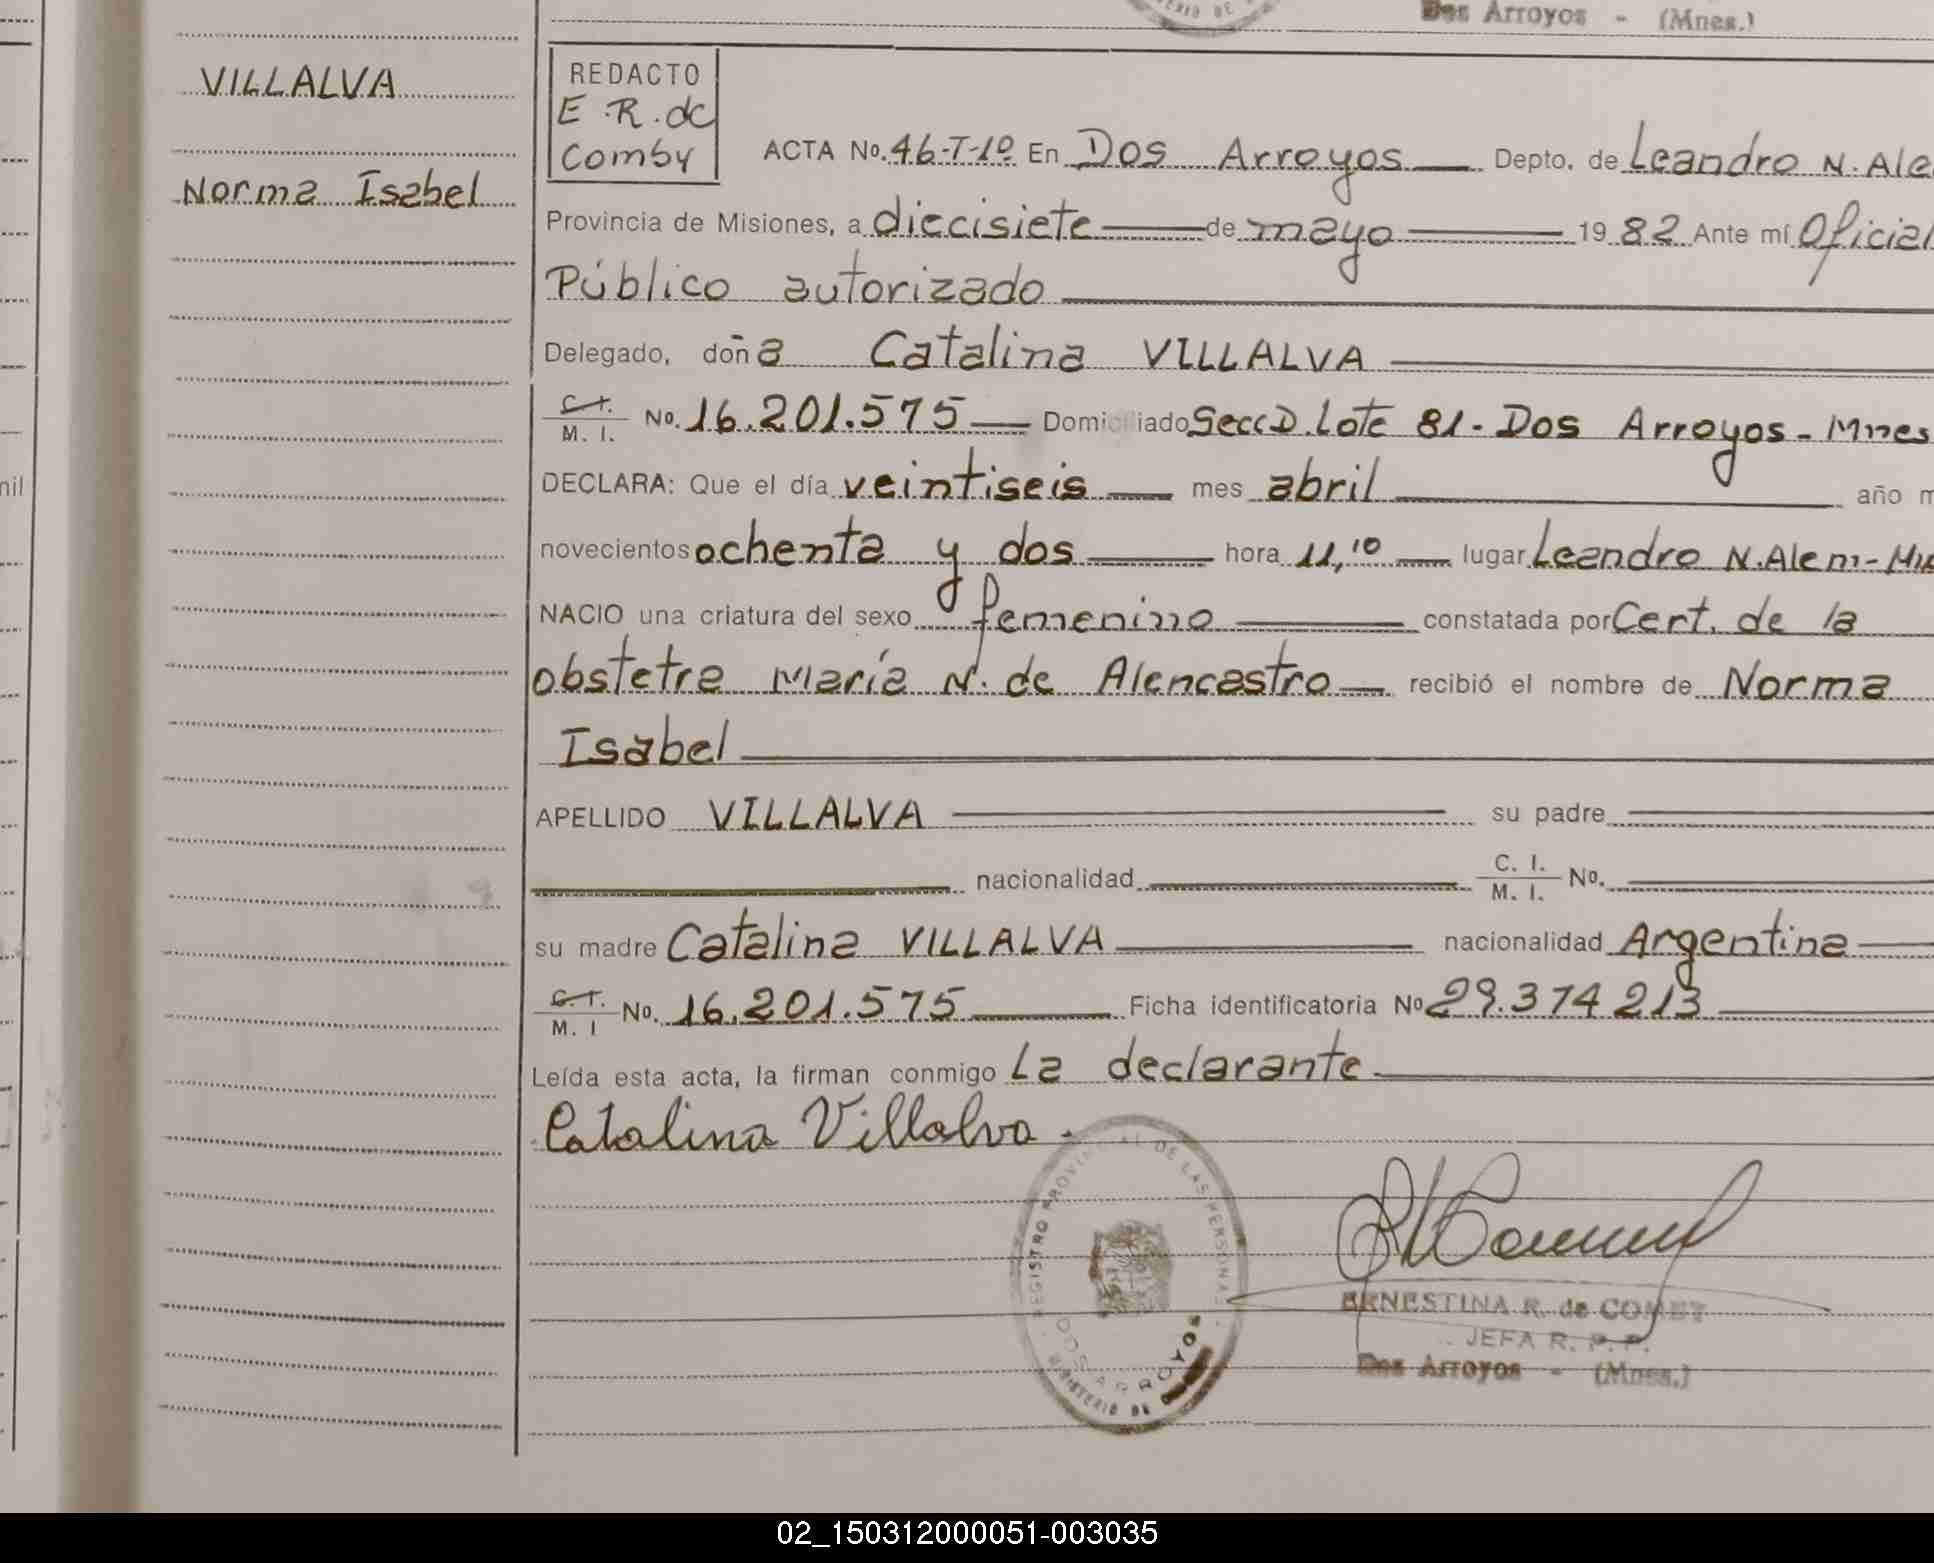 Dos Arroyos - (Mnes.)
VILLALVA
Norma Isabel
REDACTO
E.R.de
Comby
ACTA No. 46-T-1º En Dos Arroyos Depto. de Leandro N. Ale
Provincia de Misiones, a diecisiete de mayo 1982 Ante mí Oficial
Público autorizado
Delegado, doña Catalina VILLALVA
C.I. M. I. No. 16.201.575 Domiciliado Secc D. Lote 81 - Dos Arroyos - Mnes
DECLARA: Que el día veintiseis mes abril año m
novecientos ochenta y dos hora 11,10 lugar Leandro N. Alem -
NACIO una criatura del sexo femenino constatada por Cert. de la
obstetra María N. de Alencastro recibió el nombre de Norma
Isabel
APELLIDO VILLALVA su padre
nacionalidad C. I. M. I. No.
su madre Catalina VILLALVA nacionalidad Argentina
C.I. M. I No. 16.201.575 Ficha identificatoria No 29.374213
Leída esta acta, la firman conmigo La declarante
Catalina Villalva.
REGISTRO PROVINCIAL DE LAS PERSONAS
DOS ARROYOS
MINISTERIO DE
ERNESTINA R. de COMBY
JEFA R. P. P.
Dos Arroyos - (Mnes.)
nil
02_150312000051-003035